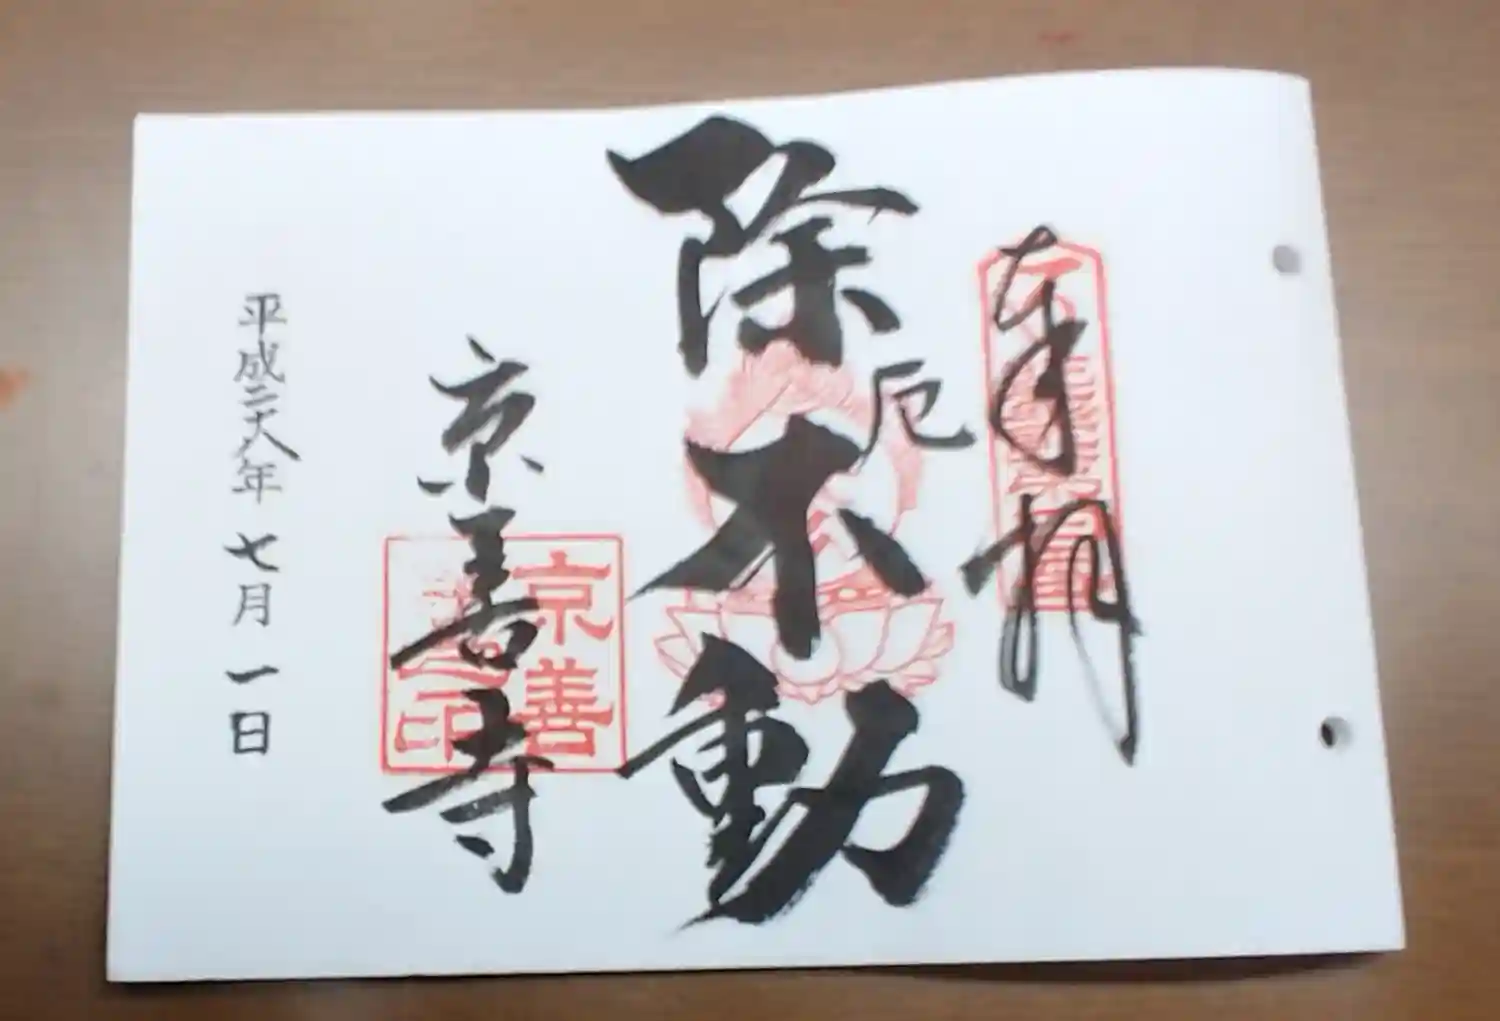 奉拝
除厄不動
京善寺
京善
印
平成二十八年七月一日